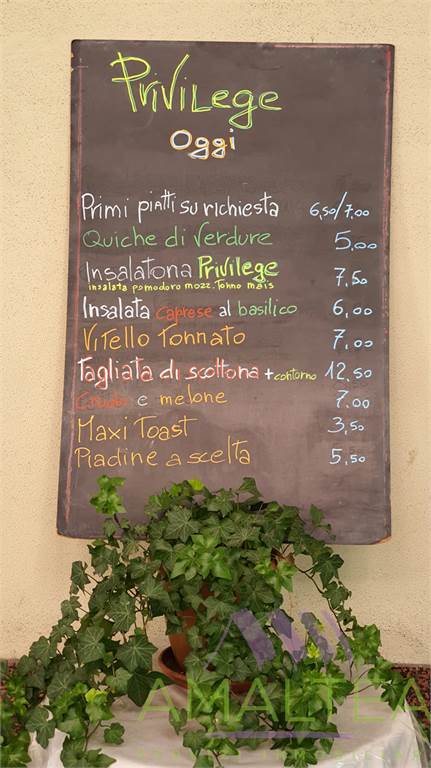 Privilege
Oggi
Primi piatti su richiesta 6,50/7,00
Quiche di Verdure 5,00
Insalatona Privilege 7,50
insalata pomodoro mozz. Tonno mais
Insalata Caprese al basilico 6,00
Vitello Tonnato 7,00
Tagliata di scottona + contorno 12,50
Crudo e melone 7,00
Maxi Toast 3,50
Piadine a scelta 5,50
AMALTEA